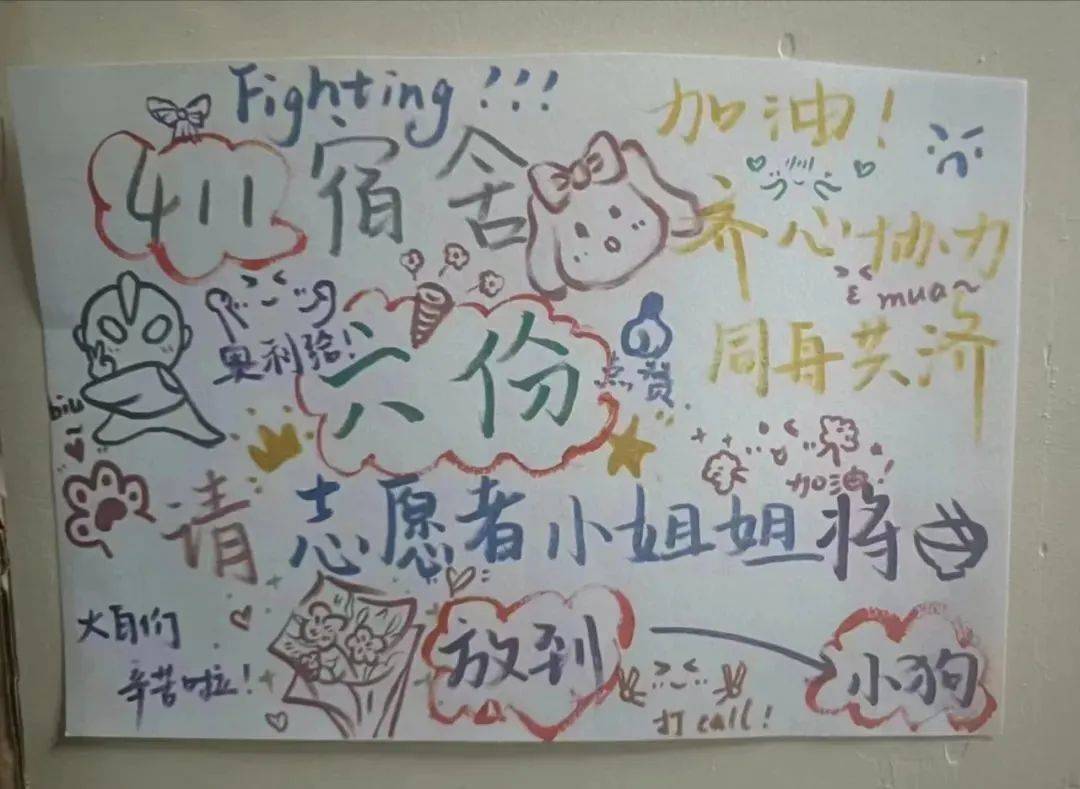 Fighting!!!
加油!
411宿舍
齐心协力
mua~
奥利给!
六份
点赞
同舟共济
biu
加油!
请志愿者小姐姐将
大白们
辛苦啦!
放到
小狗
打call!